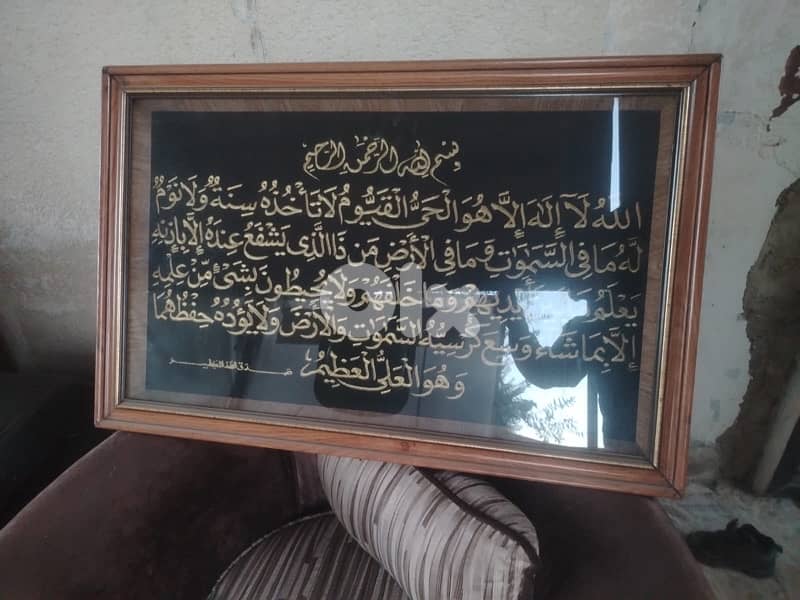 بسم الله الرحمن الرحيم
اللهُ لَآ إِلَٰهَ إِلَّا هُوَ الْحَيُّ الْقَيُّومُ لَا تَأْخُذُهُ سِنَةٌ وَلَا نَوْمٌ
لَهُ مَا فِي السَّمَوَٰتِ وَمَا فِي الْأَرْضِ مَن ذَا الَّذِي يَشْفَعُ عِندَهُ إِلَّا بِإِذْنِهِ
يَعْلَمُ أَيْدِيهِمْ وَمَا خَلْفَهُمْ وَلَا يُحِيطُونَ بِشَيْءٍ مِّنْ عِلْمِهِ
إِلَّا بِمَا شَاءَ وَسِعَ كُرْسِيُّهُ السَّمَوَٰتِ وَالْأَرْضَ وَلَا يَؤُدُهُ حِفْظُهُمَا
وَهُوَ الْعَلِيُّ الْعَظِيمُ
صدق الله العظيم
olx